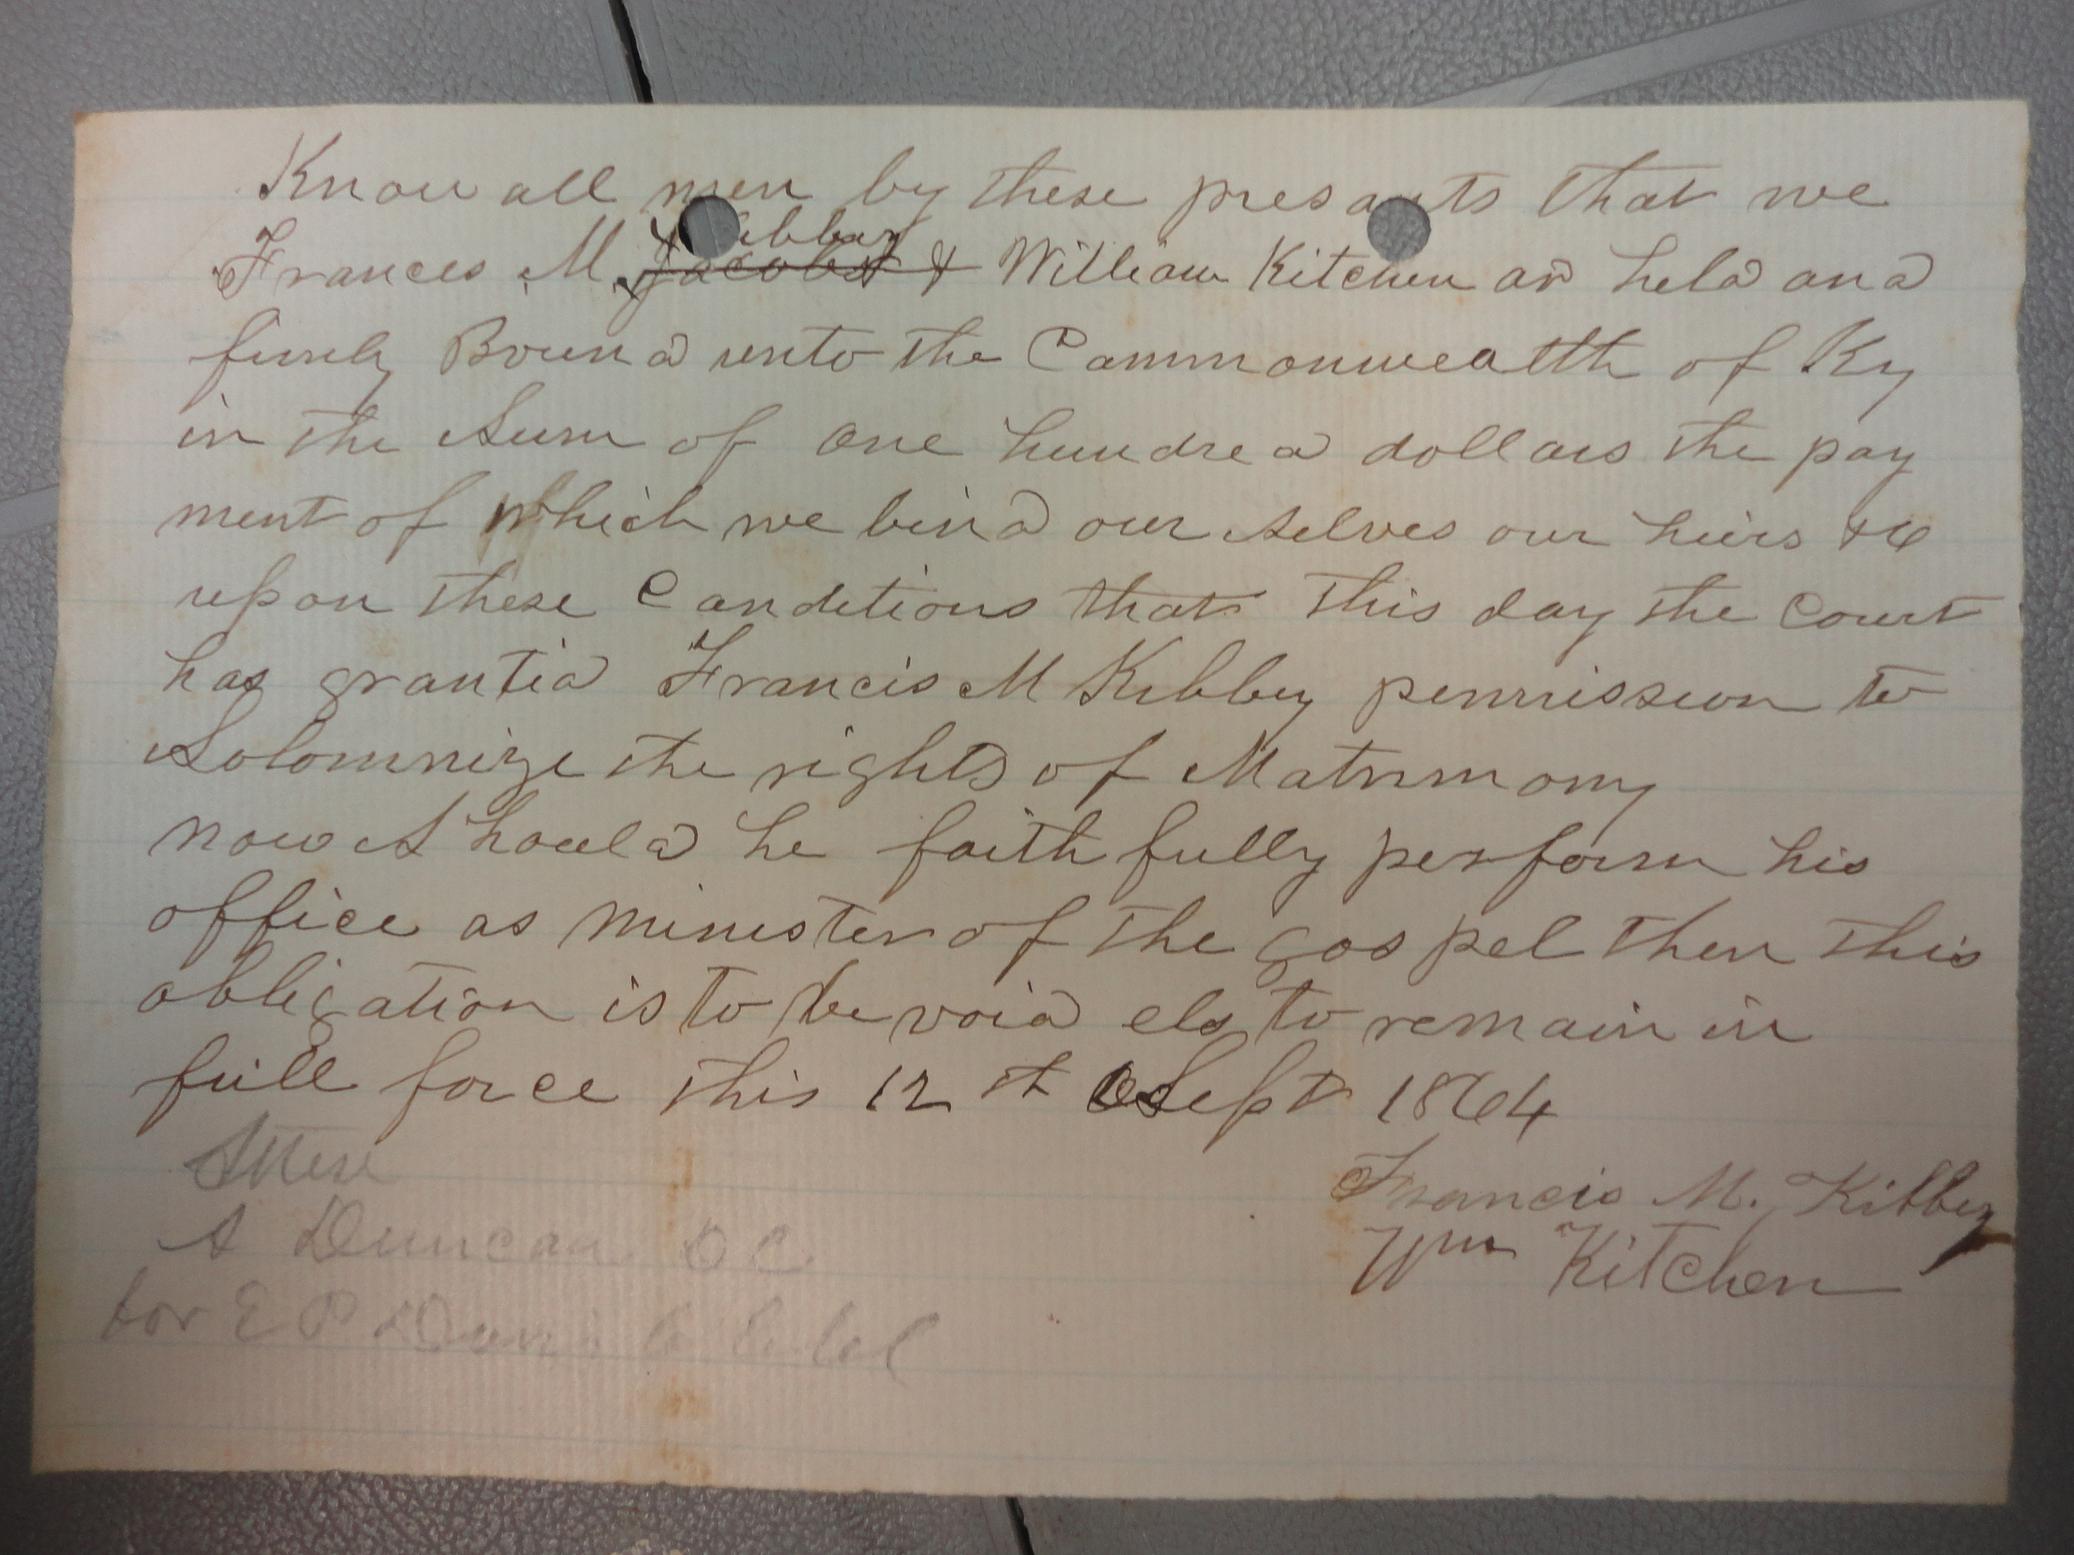 Know all men by these presants that we
Kibbey
Frances M. Jacobs & William Kitchen ar held and
firmly Bound unto the Commonwealth of Ky
in the Sum of one hundred dollars the pay
ment of which we bind our selves our heirs &c
upon these Conditions that this day the Court
has grantid Francis M Kibbey permission to
Solomnize the rights of Matrimony
now Should he faithfully perform his
office as minister of the gospel then this
obligation is to be void els to remain in
full force this 12th Sept 1864
Attest Francis M. Kibbey
A Duncan DC Wm Kitchen
for E P Davis Clerk